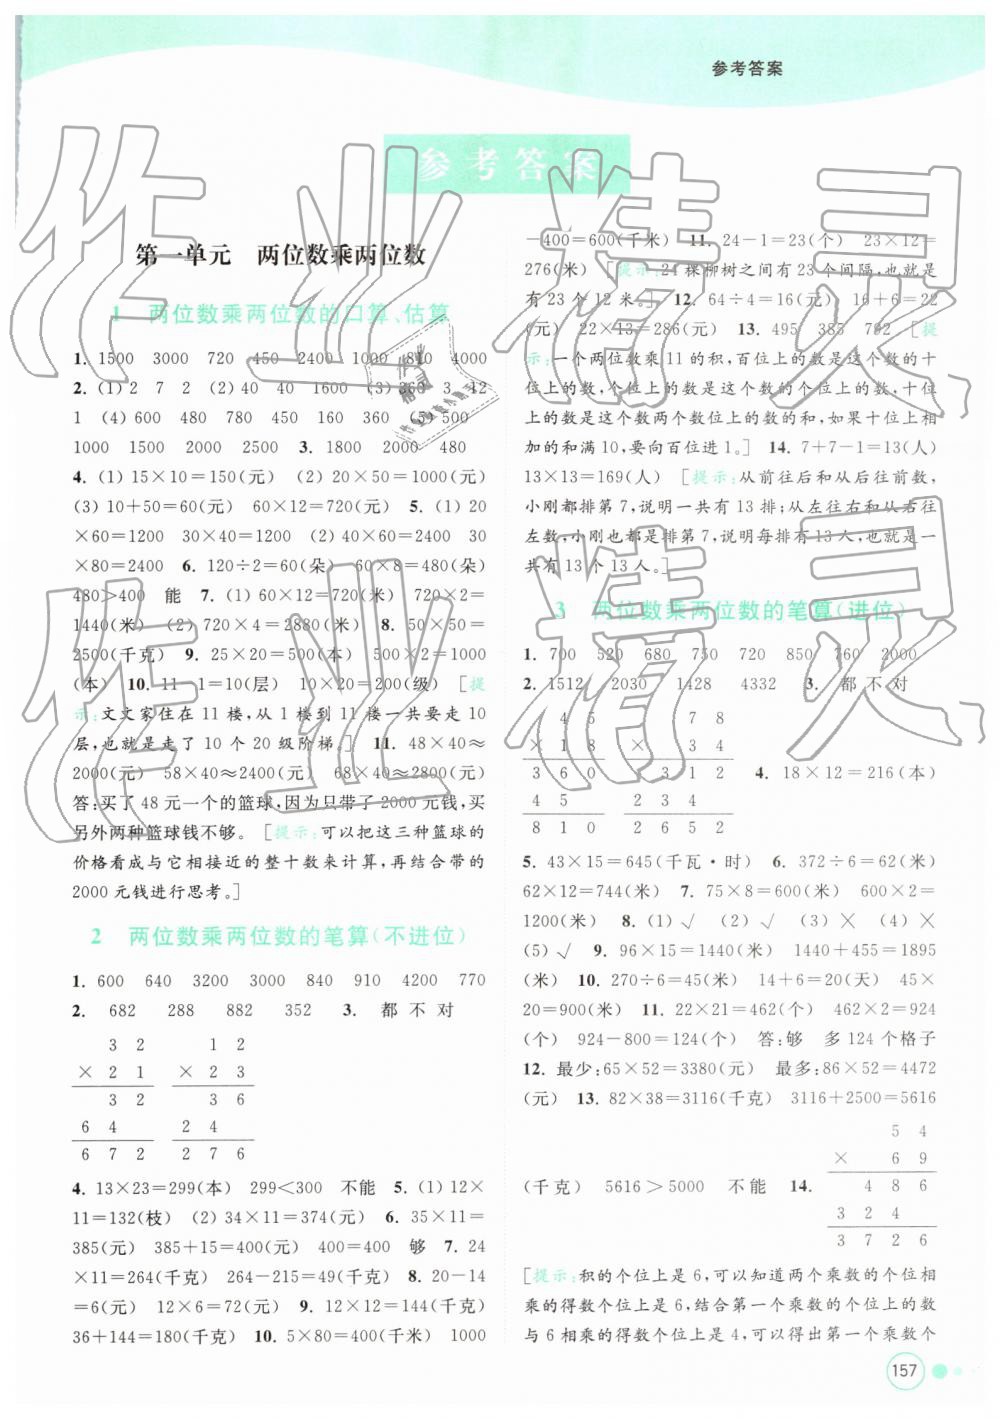 参考答案
参考答案
第一单元 两位数乘两位数
1 两位数乘两位数的口算、估算
1. 1500 3000 720 450 2400 1000 810 4000
2. (1) 2 7 2 (2) 40 40 1600 (3) 360 3 12
1 (4) 600 480 780 450 160 360 (5) 500
1000 1500 2000 3. 1800 2000 480
4. (1) 15×10=150(元) (2) 20×50=1000(元)
(3) 10+50=60(元) 60×12=720(元) 5. (1) 20
×60=1200 30×40=1200 (2) 40×60=2400 30
×80=2400 6. 120÷2=60(朵) 60×8=480(朵)
480>400 能 7. (1) 60×12=720(米) 720×2=
1440(米) (2) 720×4=2880(米) 8. 50×50=
2500(千克) 9. 25×20=500(本) 500×2=1000
(本) 10. 11-1=10(层) 10×20=200(级) [提
示:文文家住在 11 楼,从 1 楼到 11 楼一共要走 10
层,也就是走了 10 个 20 级阶梯。] 11. 48×40≈
2000(元) 58×40≈2400(元) 68×40≈2800(元)
答:买了 48 元一个的篮球,因为只带了 2000 元钱,买
另外两种篮球钱不够。 [提示:可以把这三种篮球的
价格看成与它相接近的整十数来计算,再结合带的
2000 元钱进行思考。]
2 两位数乘两位数的笔算(不进位)
1. 600 640 3200 3000 840 910 4200 770
2. 682 288 882 352 3. 都不对
3 2 1 2
× 2 1 × 2 3
3 2 3 6
6 4 2 4
6 7 2 2 7 6
4. 13×23=299(本) 299<300 不能 5. (1) 12×
11=132(枝) (2) 34×11=374(元) 6. 35×11=
385(元) 385+15=400(元) 400=400 够 7. 24
×11=264(千克) 264-215=49(千克) 8. 20-14
=6(元) 12×6=72(元) 9. 12×12=144(千克)
36+144=180(千克) 10. 5×80=400(千米) 1000
-400=600(千米) 11. 24-1=23(个) 23×12=
276(米) [提示:24 棵柳树之间有 23 个间隔,也就是
有 23 个 12 米。] 12. 64÷4=16(元) 16+6=22
(元) 22×13=286(元) 13. 495 385 792 [提
示:一个两位数乘 11 的积,百位上的数是这个数的十
位上的数,个位上的数是这个数的个位上的数,十位
上的数是这个数两个数位上的数的和,如果十位上相
加的和满 10,要向百位进 1。] 14. 7+7-1=13(人)
13×13=169(人) [提示:从前往后和从后往前数,
小刚都排第 7,说明一共有 13 排;从左往右和从右往
左数,小刚也都是排第 7,说明每排有 13 人,也就是一
共有 13 个 13 人。]
3 两位数乘两位数的笔算(进位)
1. 700 520 680 750 720 850 360 2000
2. 1512 2030 1428 4332 3. 都不对
4 5 7 8
× 1 8 × 3 4
3 6 0 3 1 2 4. 18×12=216(本)
4 5 2 3 4
8 1 0 2 6 5 2
5. 43×15=645(千瓦·时) 6. 372÷6=62(米)
62×12=744(米) 7. 75×8=600(米) 600×2=
1200(米) 8. (1) √ (2) √ (3) × (4) ×
(5) √ 9. 96×15=1440(米) 1440+455=1895
(米) 10. 270÷6=45(米) 14+6=20(天) 45×
20=900(米) 11. 22×21=462(个) 462×2=924
(个) 924-800=124(个) 答:够 多 124 个格子
12. 最少:65×52=3380(元) 最多:86×52=4472
(元) 13. 82×38=3116(千克) 3116+2500=5616
5 4
× 6 9
(千克) 5616>5000 不能 14. 4 8 6
3 2 4
3 7 2 6
[提示:积的个位上是 6,可以知道两个乘数的个位相
乘的得数个位上是 6,结合第一个乘数的个位上的数
与 6 相乘的得数个位上是 4,可以得出第一个乘数个
157
作业精灵
作业精灵